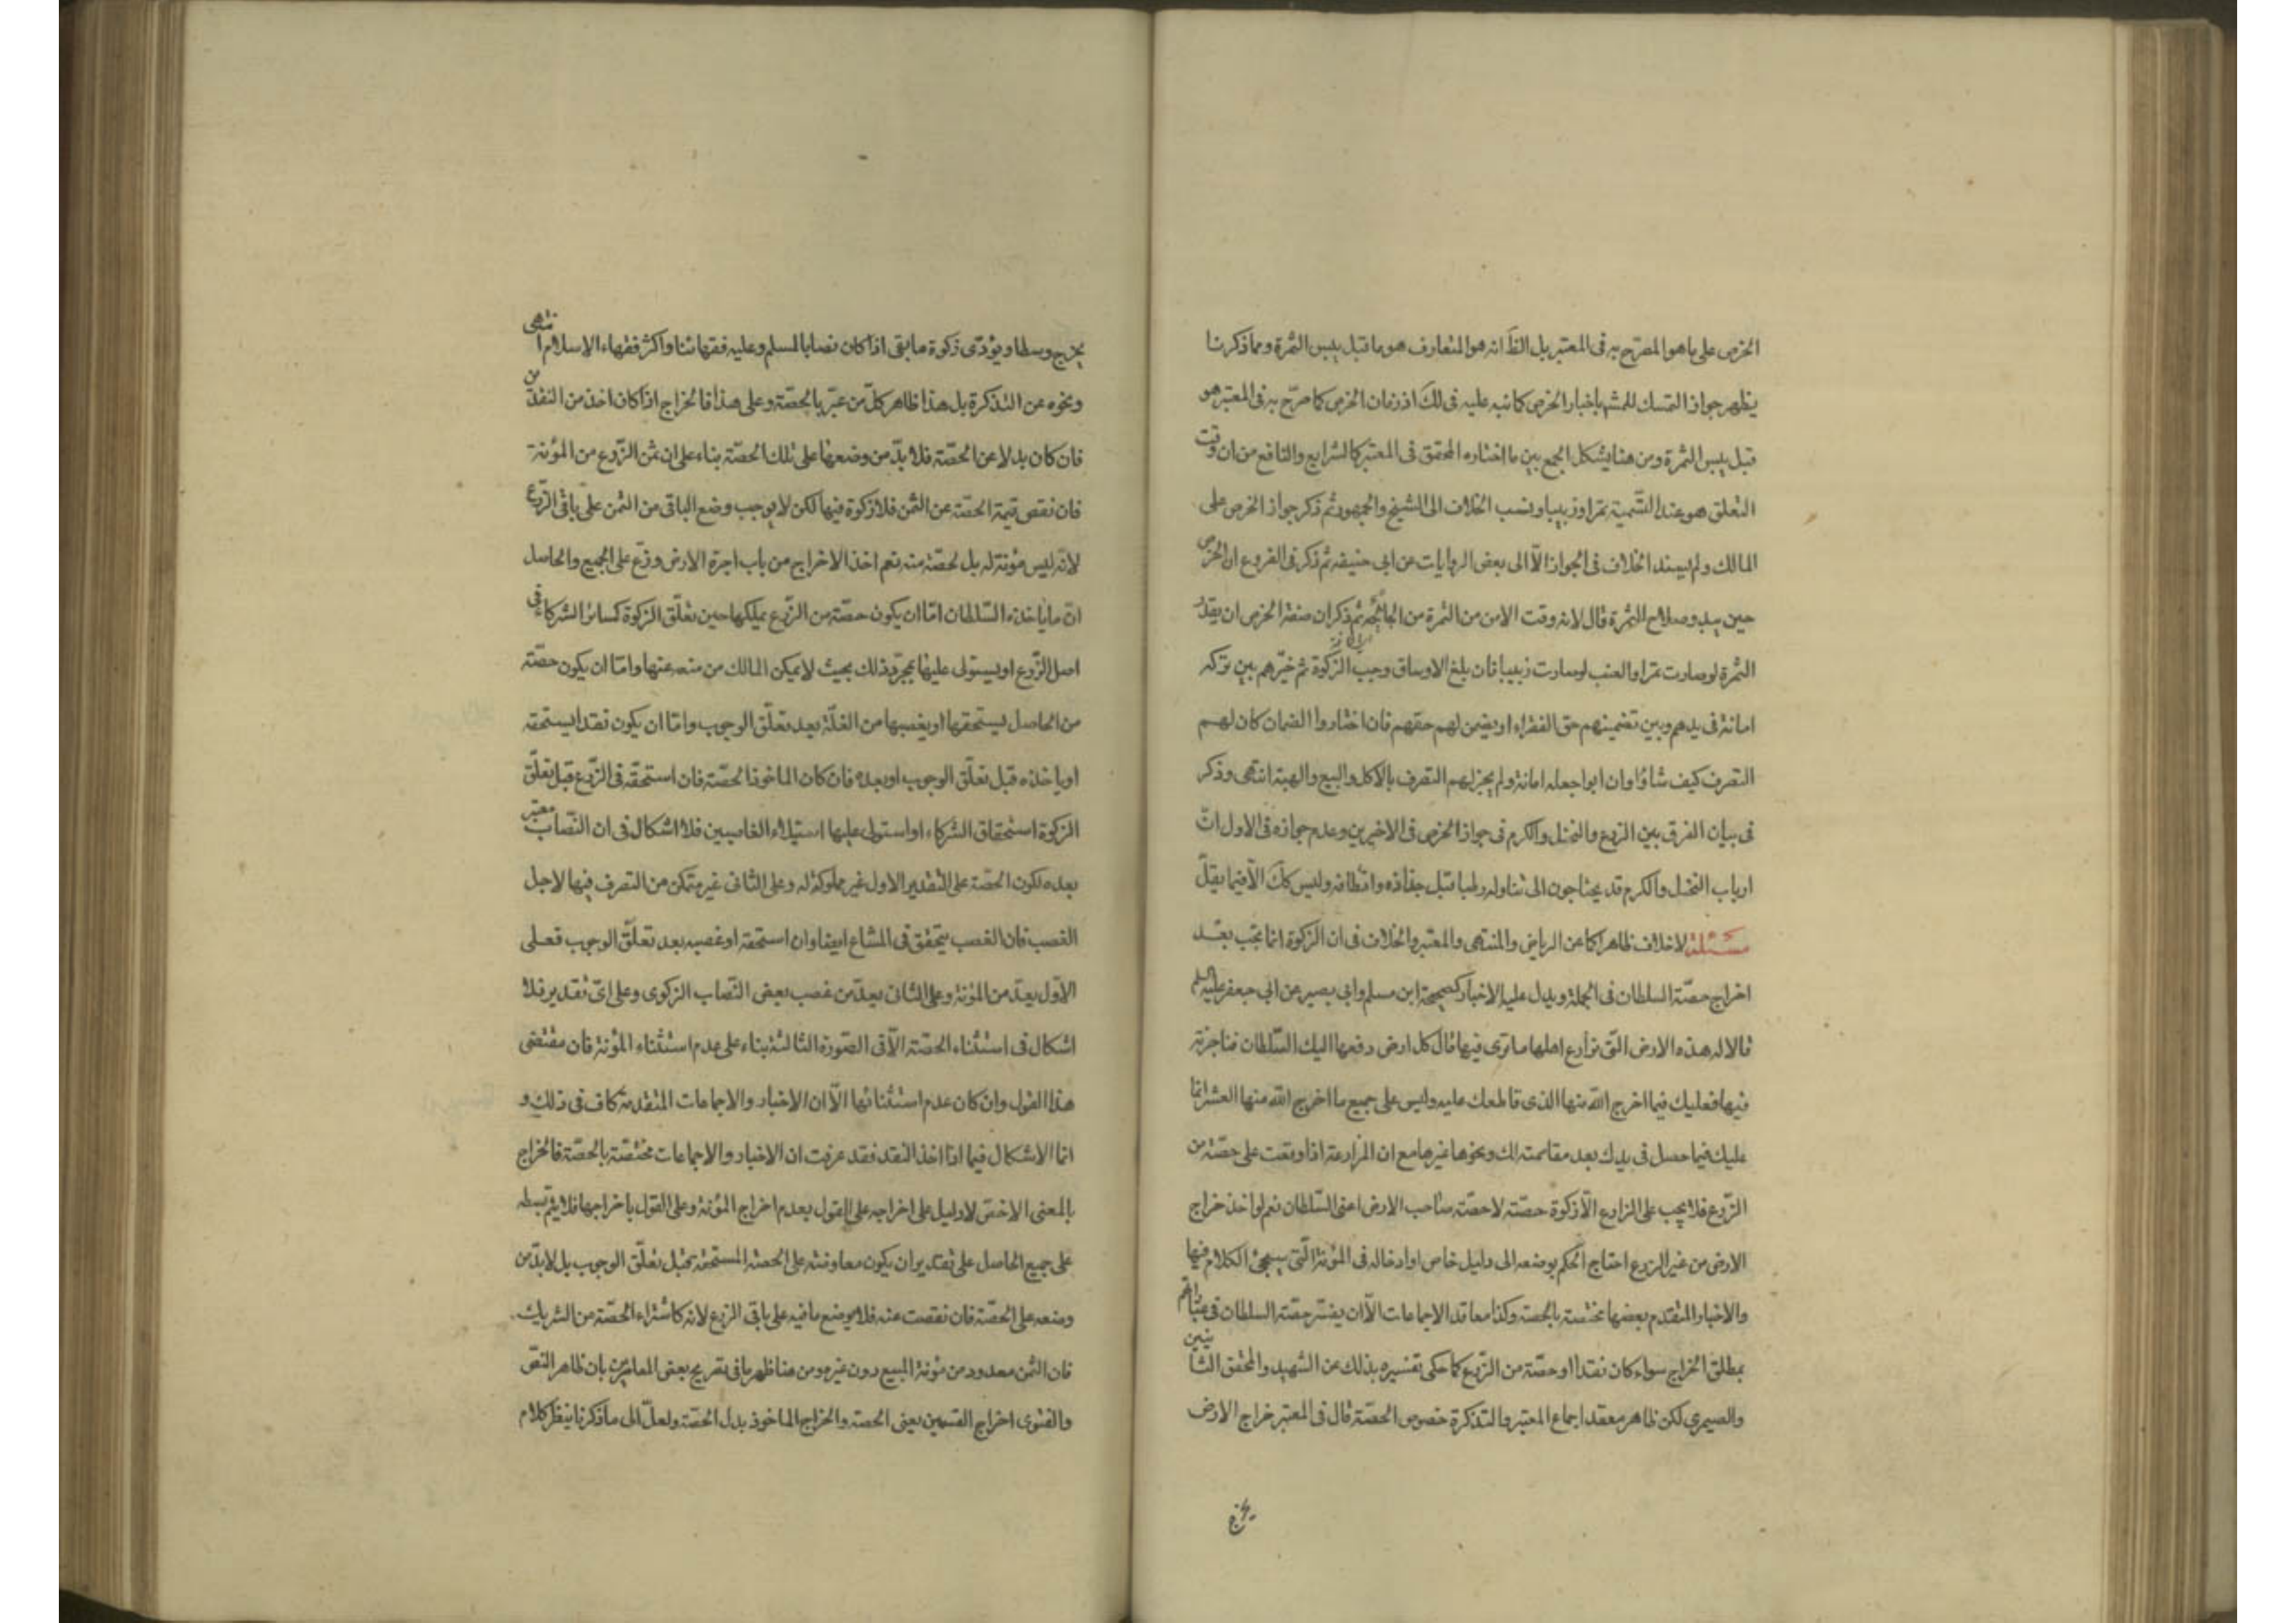 الخرص على ما هو المصرّح به فى المعتبر بل الظَ انه هو المتعارف هو ما قبل يبس الثمرة ومما ذكرنا
يظهر جواز التمسك للمشهـ باخبار الخرص كما نبه عليه فى لكَ اذ زمان الخرص كما صرّح به فى المعتبر هو
قبل يبس الثمرة ومن هنا يشكل الجمع بين ما اختاره المحقق فى المعتبر كالشرايع والنافع من ان وقت
التعلق هو عند التسمية تمرا وزبيبا ونسب الخلاف الى الشيخ والجمهور ثم ذكر جواز الخرص على
المالك ولم يسند الخلاف فى الجواز الّا الى بعض الروايات عن ابى حنيفه ثم ذكر فى الفروع ان الخرص
حين يبدو صلاح الثمرة قال لانه وقت الامن من الثمرة من الجائحه ثم ذكر ان صفة الخرص ان يقدر
الثمرة لو صارت تمرا والعنب لو صارت زبيبا فان بلغ الاوساق وجب الزكوة ثم خيّرهم بين تركه
امانة فى يدهم وبين تضمينهم حق الفقراء او يضمن لهم حقهم فان اختاروا الضمان كان لهم
التصرف كيف شاؤا وان ابوا جعله امانة ولم يجز لهم التصرف بالاكل والبيع والهبة انتهى وذكر
فى بيان الفرق بين الزرع والنخل والكرم فى جواز الخرص فى الاخيرين وعدم جوازه فى الاول انّ
ارباب النخل والكرم قد يحتاجون الى تناوله رطبا قبل جذاذه واقطافه وليس ككَ الّا فيما يقلّ
مسئلة لا خلاف ظاهرا كما عن الرياض والمنتهى والمعتبر والخلاف فى ان الزكوة انما تجب بعد
اخراج حصّة السلطان فى الجملة ويدل عليه الاخبار كصحيحة ابن مسلم وابى بصير عن ابى جعفر عليه السلم
قالا له هذه الارض التى نزارع اهلها ما ترى فيها قال كل ارض دفعها اليك السّلطان فما حرثته
فيها فعليك فيما اخرج الله منها الذى قاطعك عليه وليس على جميع ما اخرج الله منها العشر انما
عليك فيما حصل فى يدك بعد مقاسمته لك ونحوها غيرها مع ان المزارعة اذا وقعت على حصّة من
الزرع فلا يجب على الزارع الّا زكوة حصّته لا حصّة صاحب الارض اعنى السّلطان نعم لو اخذ خراج
الارض من غير الزرع احتاج الحكم بوضعه الى دليل خاص او ادخاله فى المؤنة الّتى سيجئ الكلام فيها
والاخبار المتقدم بعضها مختصة بالحصة وكذا معاقد الاجماعات الّا ان يفسّر حصّة السلطان فى عباراتهم
بمطلق الخراج سواء كان نقدا او حصّة من الزرع كما حكى تفسيره بذلك عن الشهيد والمحقق الثانيين
والصيمرى لكن ظاهر معقد اجماع المعتبر والتذكرة خصوص الحصّة قال فى المعتبر خراج الارض
يخرج
يخرج وسطا ويؤدّى زكوة ما بقى اذا كان نصابا لمسلم وعليه فقهائنا واكثر فقهاء الاسلام انتهى
ونحوه عن التذكرة بل هذا ظاهر كلّ من عبّر بالحصّة وعلى هذا فالخراج اذا كان اخذ من النقدين
فان كان بدلا عن الحصّة فلا بدّ من وضعها على تلك الحصّة بناء على ان ثمن الزرع من المؤنة
فان نقص قيمة الحصّة عن الثمن فلا زكوة فيها لكن لا يوجب وضع الباقى من الثمن على باقى الزّرع
لانّه ليس مؤنة له بل لحصّة منه نعم اخذ الاخراج من باب اجرة الارض وزّع على الجميع والحاصل
انّ ما ياخذه السّلطان امّا ان يكون حصّة من الزّرع يملكها حين تعلّق الزكوة كسائر الشركاء فى
اصل الزّرع او يستولى عليها بمجرّد ذلك بحيث لا يمكن المالك من منعه عنها وامّا ان يكون حصّة
من الحاصل يستحقها او يغصبها من الغلّة بعد تعلّق الوجوب وامّا ان يكون نقدا يستحقه
او ياخذه قبل تعلّق الوجوب او بعده فان كان الماخوذ الحصّة فان استحقّه فى الزّرع قبل تعلّق
الزكوة استحقاق الشركاء او استولى عليها استيلاء الغاصبين فلا اشكال فى ان النّصاب معتبر
بعده لكون الحصّة على التقدير الاول غير مملوكة له وعلى الثانى غير متمكن من التصرف فيها لاجل
الغصب فان الغصب يتحقق فى المشاع ايضا وان استحقه او غصبه بعد تعلّق الوجوب فعلى
الاوّل يعدّ من المؤنة وعلى الثانى يعدّ من غصب بعض النّصاب الزكوى وعلى اىّ تقدير فلا
اشكال فى استثناء الحصّة الّا فى الصّورة الثالثة بناء على عدم استثناء المؤنة فان مقتضى
هذا القول وان كان عدم استثنائها الّا ان الاخبار والاجماعات المتقدمة كاف فى ذلك و
انما الاشكال فيما اذا اخذ النقد فقد عرفت ان الاخبار والاجماعات مختصّة بالحصّة فالخراج
بالمعنى الاخصّ لا دليل على اخراجه على القول بعدم اخراج المؤنة وعلى القول باخراجها فلا يتم بسطه
على جميع الحاصل على تقدير ان يكون معاوضة على الحصّة المستحقة قبل تعلّق الوجوب بل لا بدّ من
وضعه على الحصّة فان نقصت عنه فلا يوضع ما فيه على باقى الزرع لانه كاشتراء الحصّة من الشريك
فان الثمن معدود من مؤنة المبيع دون غيره ومن هنا ظهر ما فى تصريح بعض المعاصرين بان ظاهر النصّ
والفتوى اخراج القسمين يعنى الحصة والخراج الماخوذ بدل الحصّة ولعلّ الى ما ذكرنا ينظر كلام